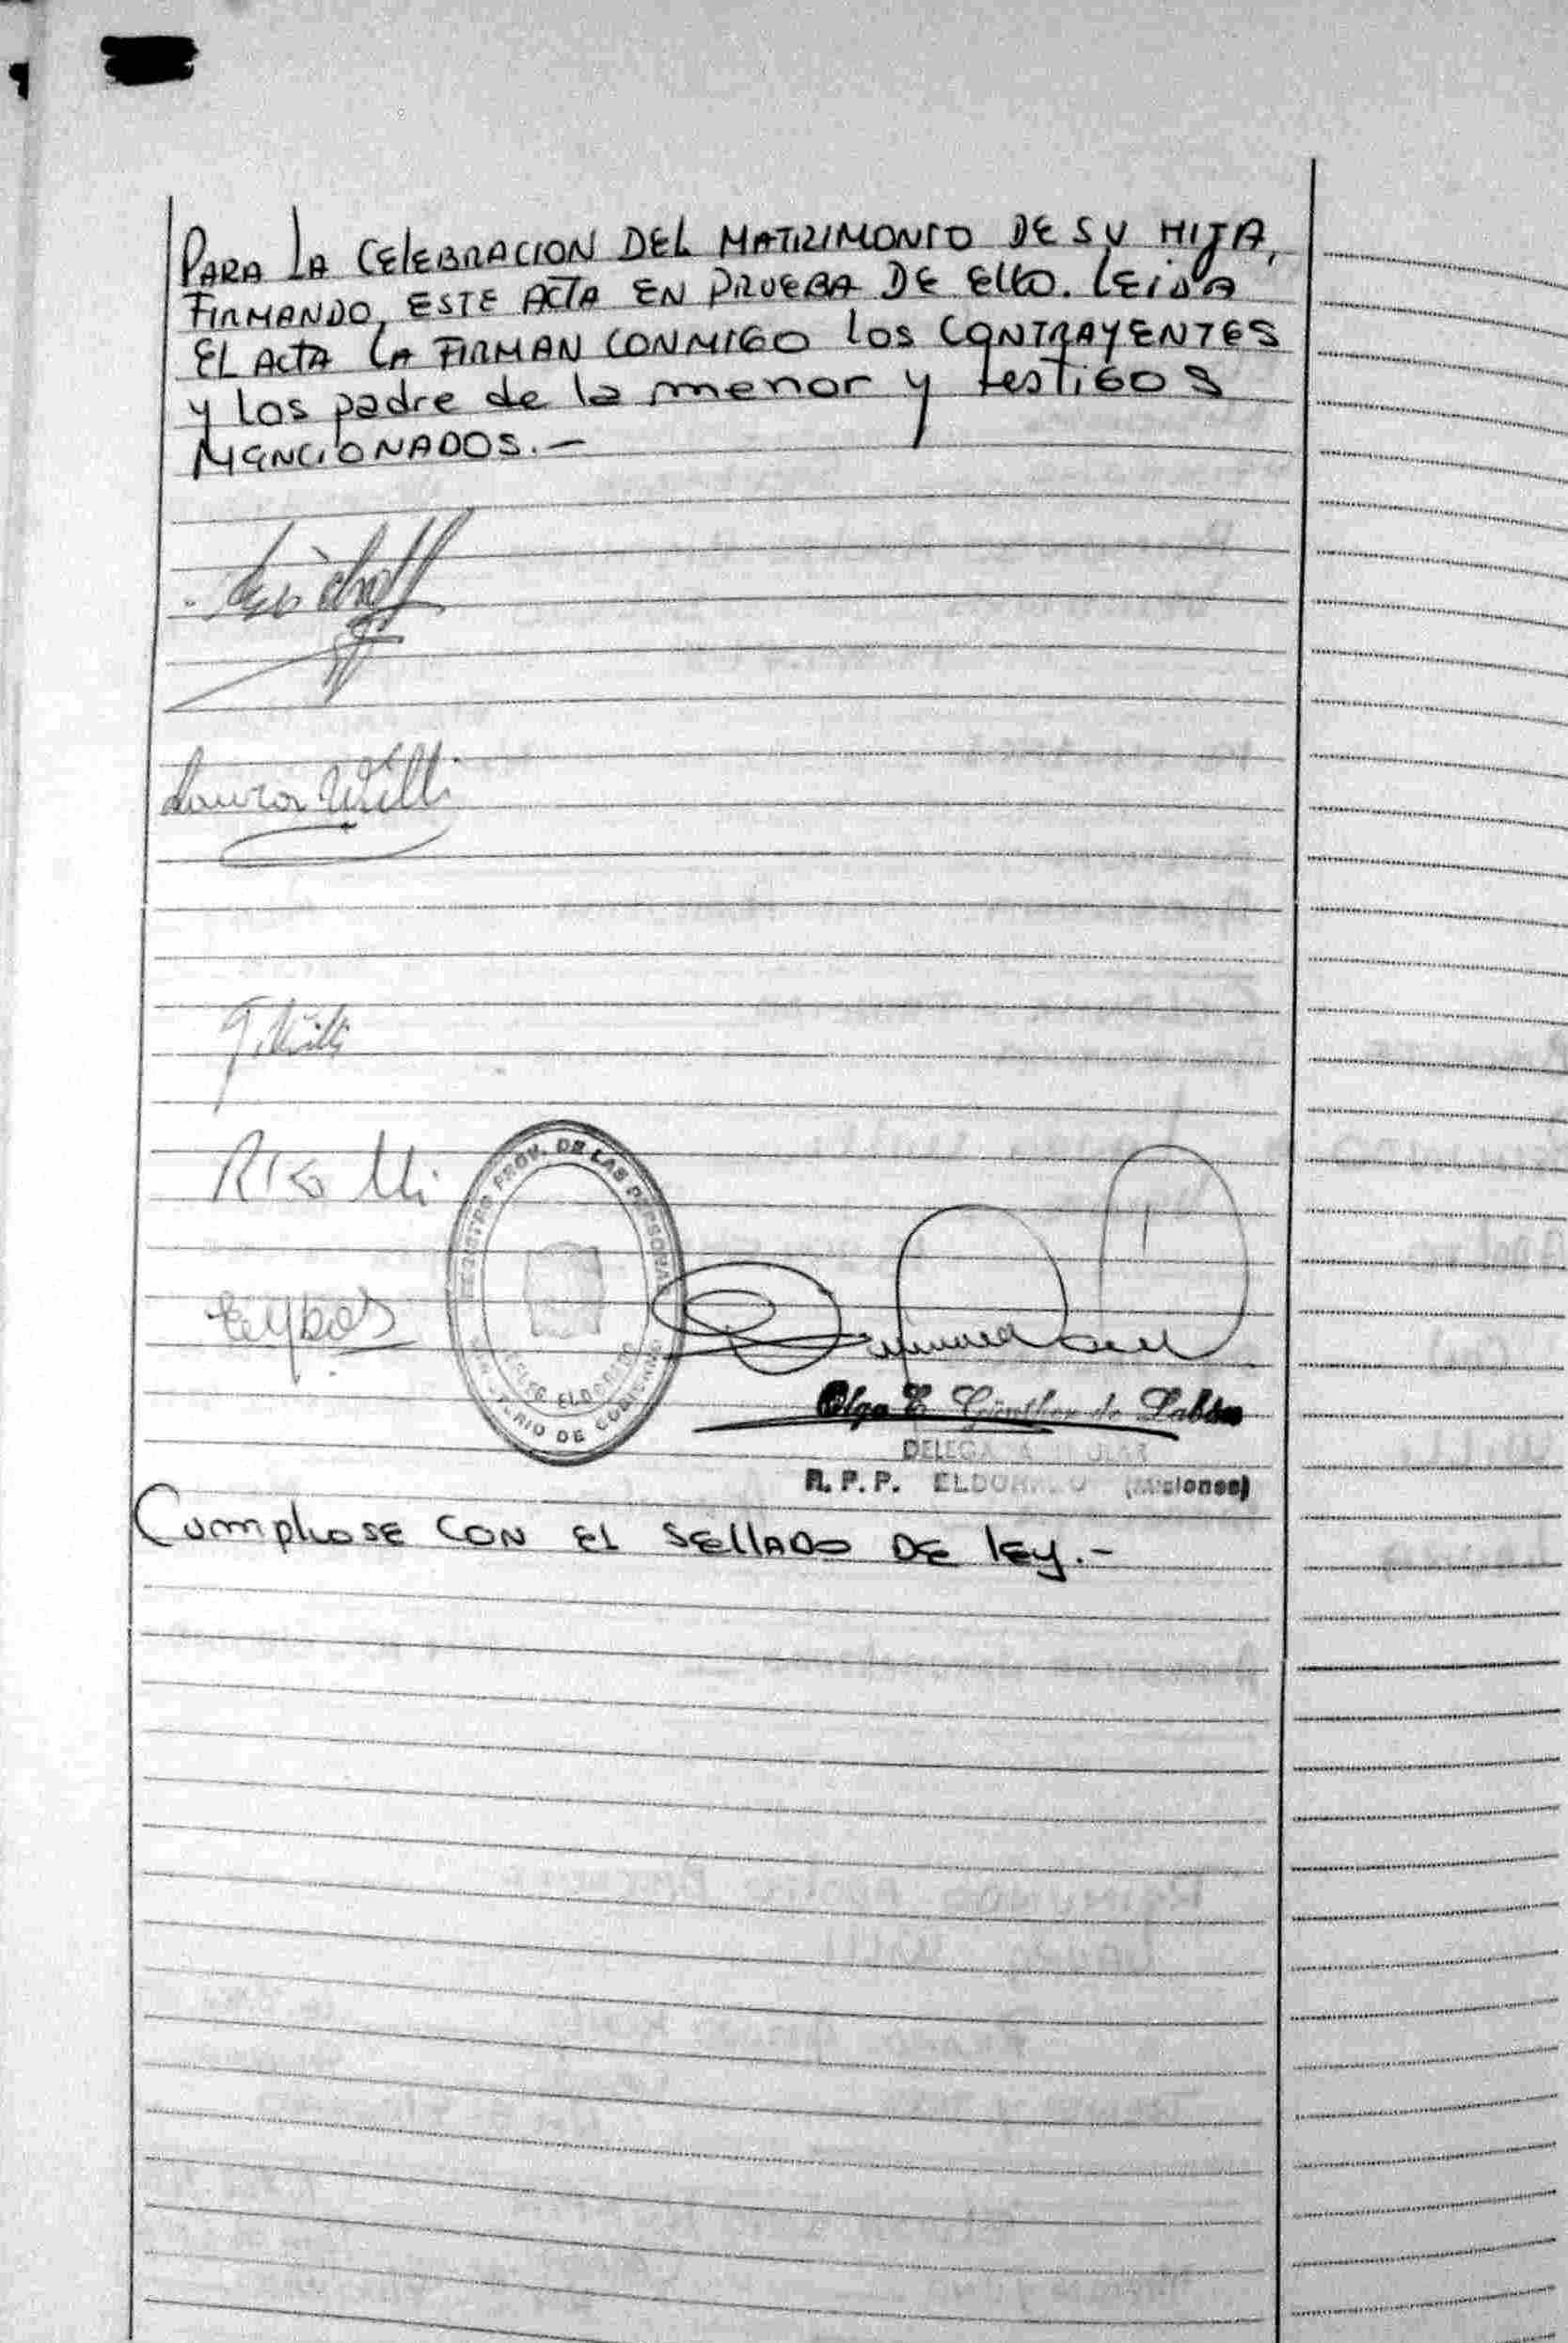 PARA LA CELEBRACION DEL MATRIMONIO DE SU HIJA,
FIRMANDO, ESTE ACTA EN PRUEBA DE ELLO. LEIDA
EL ACTA LA FIRMAN CONMIGO LOS CONTRAYENTES
y los padre de la menor y testigos
MENCIONADOS.-
Laura Willi
REGISTRO PROV. DE LAS PERSONAS
DELEG. ELDORADO
MINISTERIO DE GOBIERNO
Olga E. Günther de
DELEGADA TITULAR
R. P. P. ELDORADO (Misiones)
Cumplase CON EL SELLADO DE LEY.-